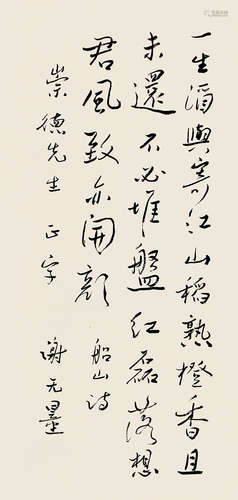 一生酒興寄江山稻熟橙香且
未還不必堆盤紅磊落想
君風致亦開顏 船山詩
崇德先生正字 謝无量